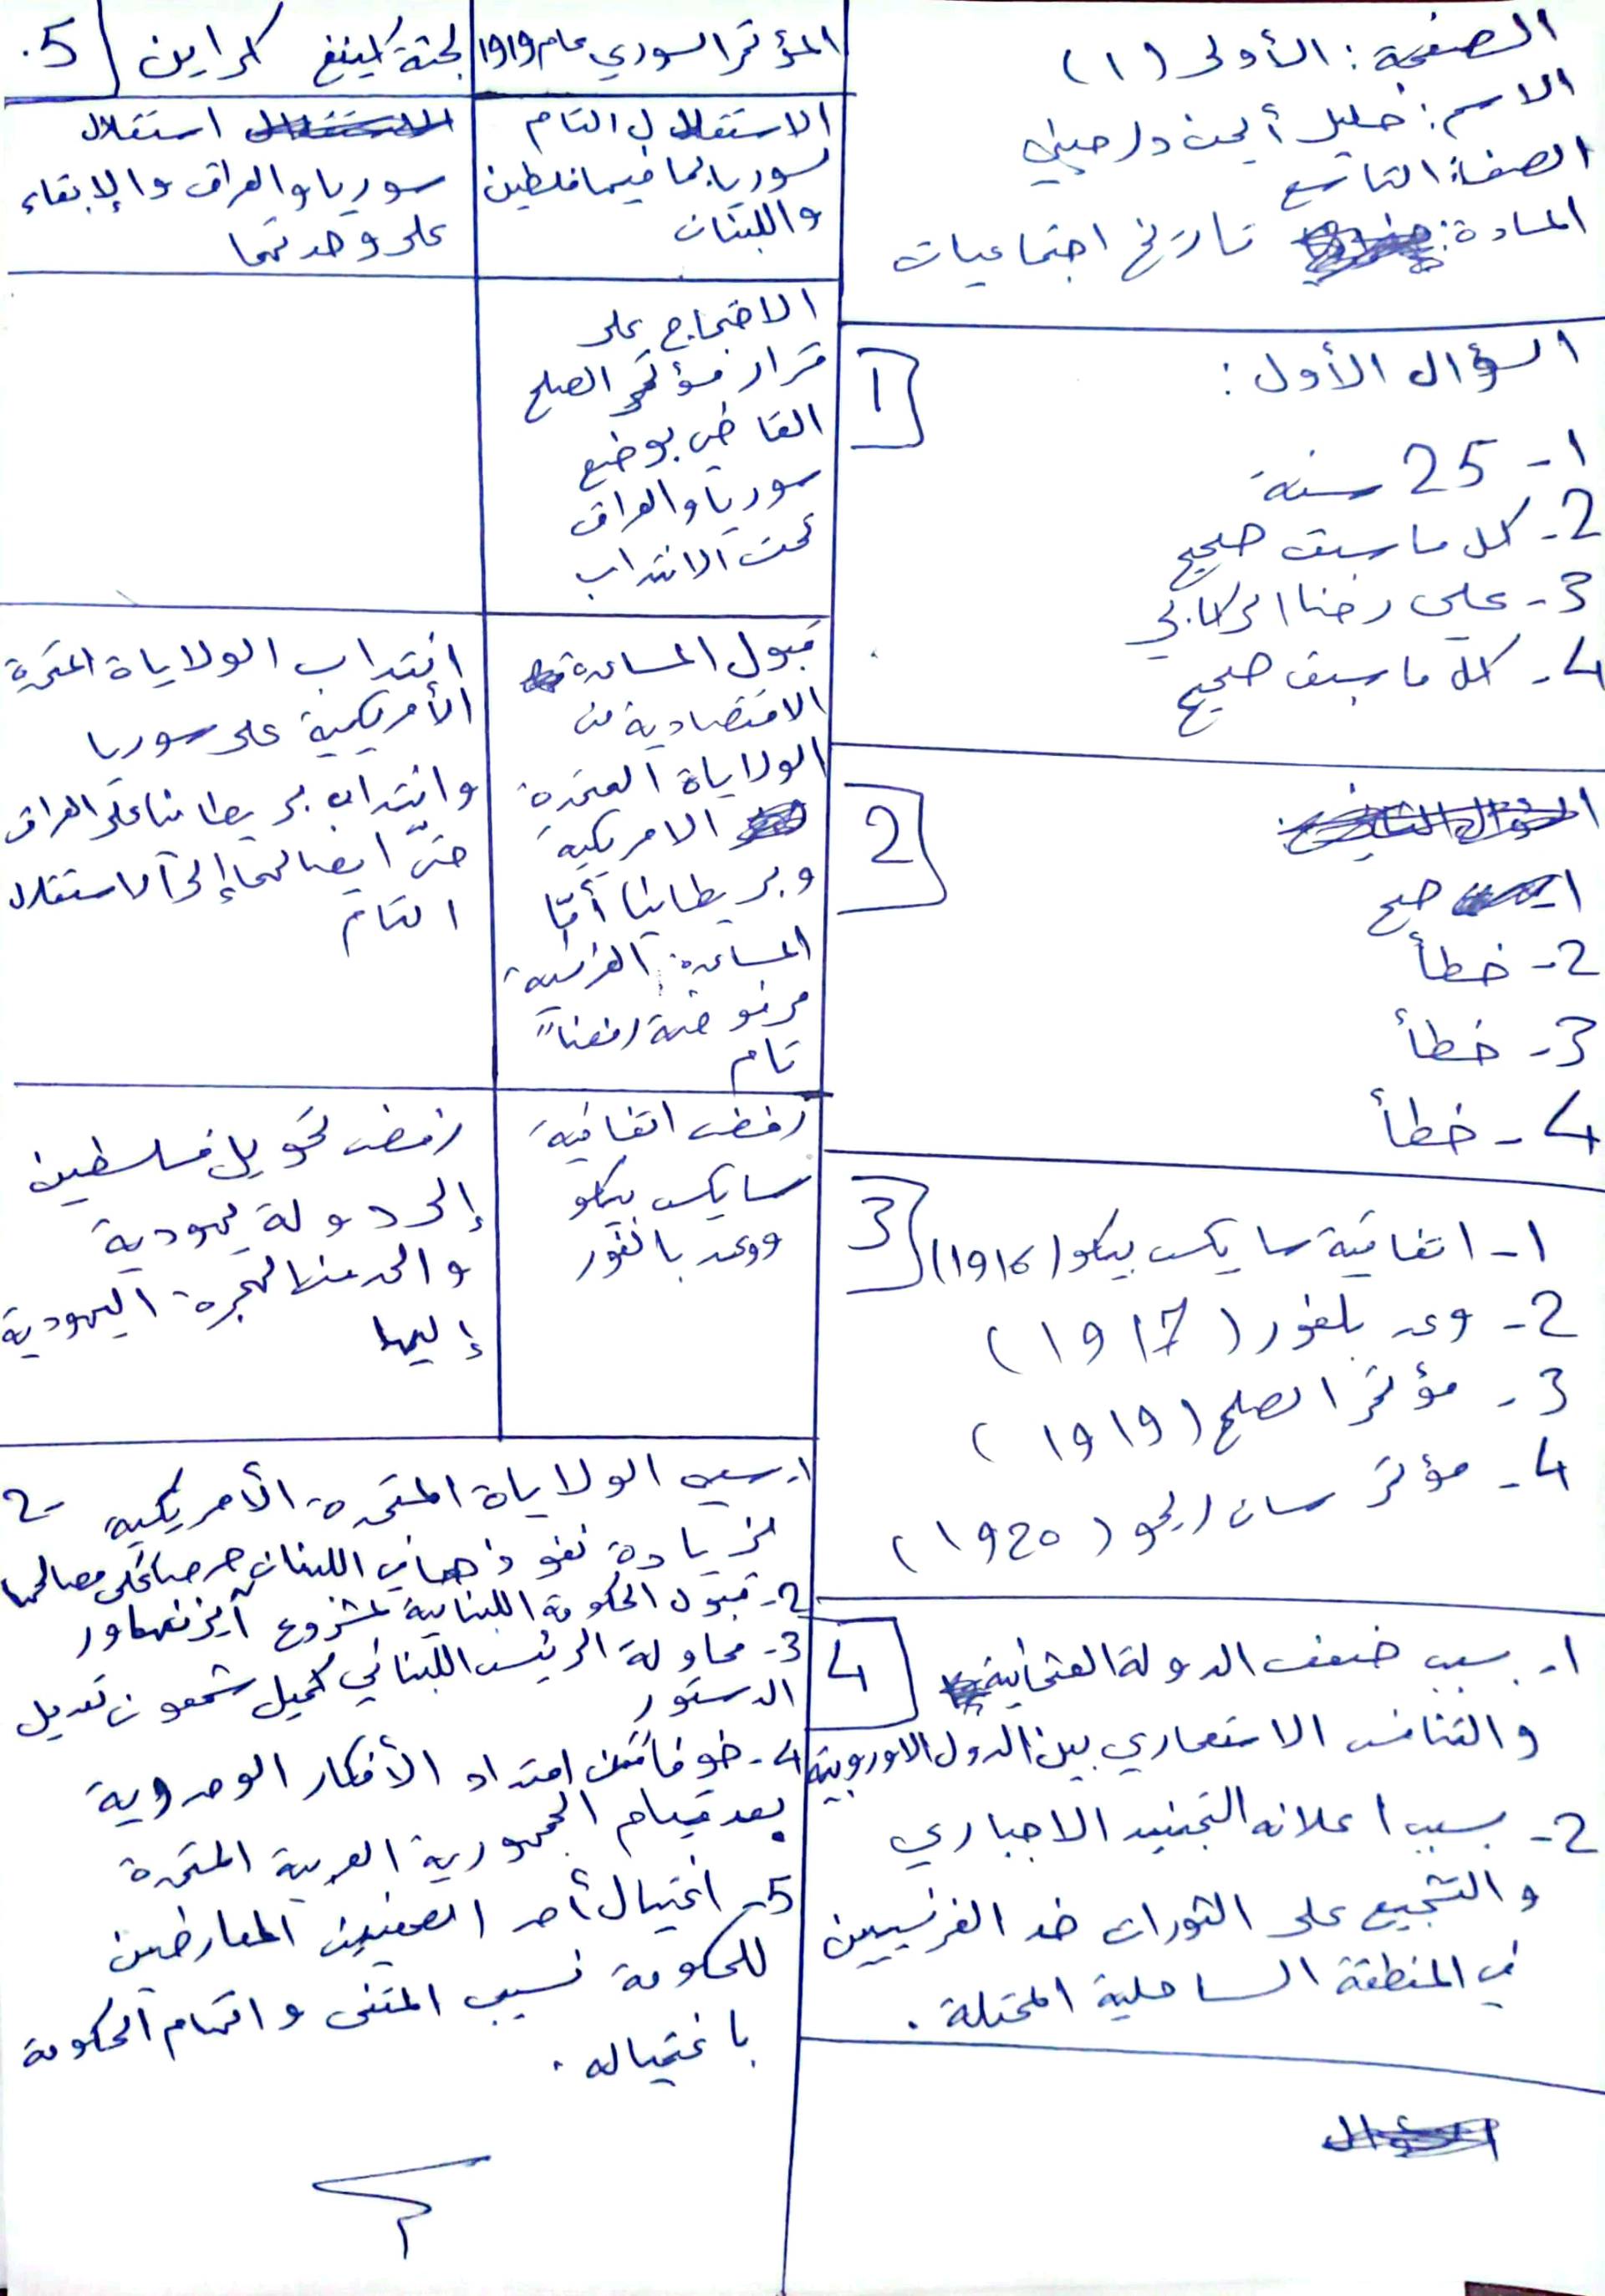 الصفحة: الأولى (١)
الاسم: خليل أيمن
الصف: التاسع
المادة: تاريخ اجتماعيات
السؤال الأول:
1
١- 25 سنة
2- كل ما سبق صحيح
3- علي رضا الركابي
4- كل ما سبق صحيح
2
صح
2- خطأ
3- خطأ
4- خطأ
3
١- اتفاقية سايكس بيكو (١٩١٦)
2- وعد بلفور (١٩١7)
3- مؤتمر الصلح (١٩١٩)
4- مؤتمر سان ريمو (١٩2٥)
4
١- بسبب ضعف الدولة العثمانية
والتنافس الاستعماري بين الدول الاوروبية
2- بسبب اعلانه التجنيد الاجباري
والتشجيع على الثورات ضد الفرنسيين
في المنطقة الساحلية المحتلة.
5.
المؤتمر السوري عام ١٩١٩
لجنة كينغ كراين
الاستقلال التام
لسوريا بما فيها فلسطين
واللبنان
استقلال
سوريا والعراق والإبقاء
على وحدتهما
الاحتجاج على
قرار مؤتمر الصلح
القاضي بوضع
سوريا والعراق
تحت الانتداب
قبول المساعدة
الاقتصادية من
الولاياة المتحدة
الامريكية
وبريطانيا أمّا
المساعدة الفرنسية
مرفوضة رفضاً
تام
انتداب الولاياة المتحدة
الأمريكية على سوريا
وانتداب بريطانيا على العراق
حتّى ايصالهما إلى الاستقلال
التام
رفض اتفاقية
سايكس بيكو
ووعد بالفور
رفض تحويل فلسطين
إلى دولة يهودية
والحد من الهجرة اليهودية
إليها
2-
١- سعي الولاياة المتحدة الأمريكية
لزيادة نفوذها في اللبنان حرصا على مصالحها
2- قبول الحكومة اللبنانية لمشروع آيزنهاور
3- محاولة الرئيس اللبناني كميل شمعون تعديل
الدستور
4- خوفاً من امتداد الأفكار الوحدوية
بعد قيام الجمهورية العربية المتحدة
5- اغتيال أحد الصحفيين المعارضين
للحكومة نسيب المتنى واتهام الحكومة
باغتياله.